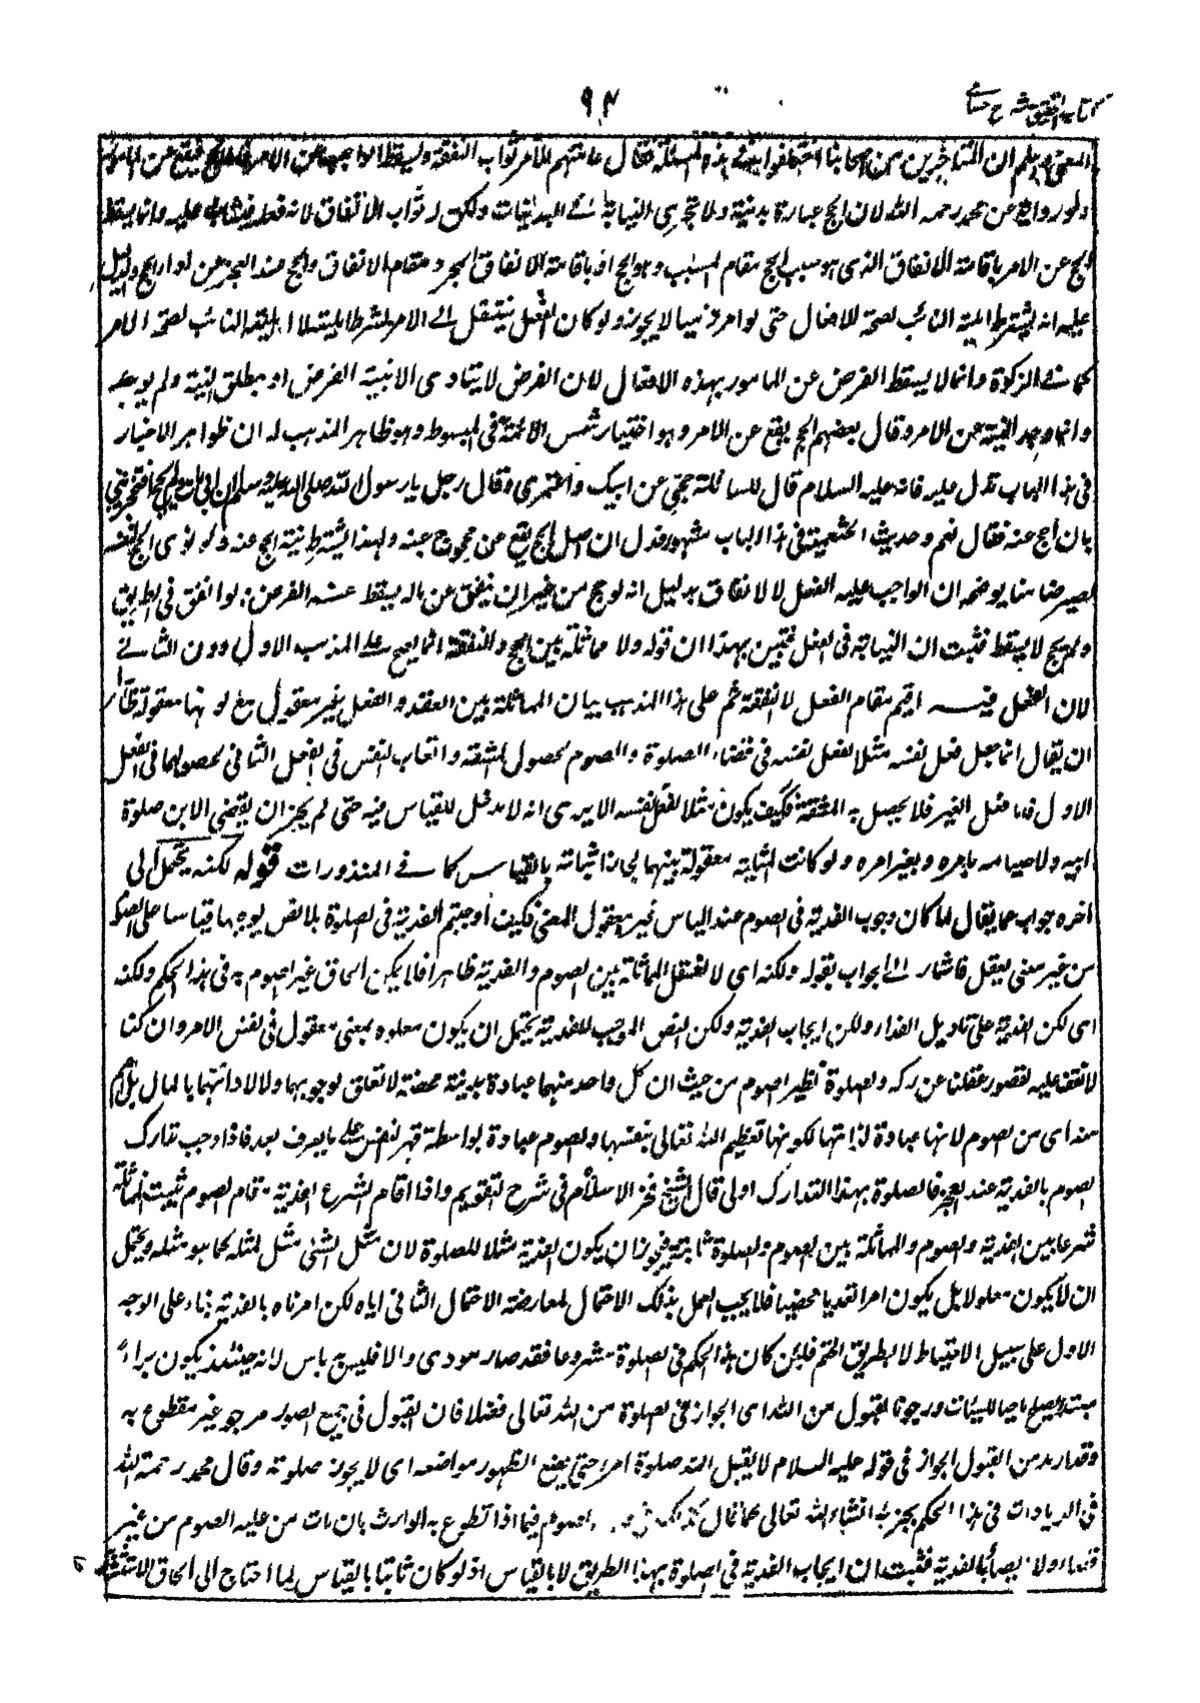 ٩٢
المعنى اعلم ان المتاخرين من اصحابنا اختلفوا في هذه المسئلة فقال عامتهم للآمر ثواب النفقة ويسقط الواجب عن الآمر الحج فيقع عن المامور
وهو رواية عن محمد رحمه الله لان الحج عبادة بدنية ولا تجرى النيابة في البدنيات ولكن له ثواب الانفاق لانه فعله فيثاب عليه وانما يسقط
الحج عن الآمر باقامة الانفاق الذى هو سبب الحج مقام المسبب وهو الحج اذ باقامة الانفاق المجرد مقام الانفاق والحج عند العجز عن اداء الحج والدليل
عليه انه يشترط اهلية النائب لصحة الافعال حتى لو امر ذميا لا يجوز ولو كان الفعل ينتقل الى الآمر لشرط اهليته لا اهلية النائب لصحة الامر
كما في الزكوة وانما لا يسقط الفرض عن المامور بهذه الافعال لان الفرض لا يتادى الا بنية الفرض او مطلق النية ولم يوجد
وانما وجد النية عن الآمر وقال بعضهم الحج يقع عن الآمر وهو اختيار شمس الائمة في المبسوط وهو ظاهر المذهب له ان ظواهر الاخبار
في هذا الباب تدل عليه فانه عليه السلام قال للسائلة حجى عن ابيك واعتمرى وقال رجل يا رسول الله صلى الله عليه وسلم ان ابى مات ولم يحج افتجزينى
بان احج عنه فقال نعم وحديث الخثعمية في هذا الباب مشهور فدل ان اصل الحج يقع عن المحجوج عنه ولهذا يشترط نية الحج عنه ولو نوى الحج لنفسه
يصير ضامنا يوضحه ان الواجب عليه الفعل لا الانفاق بدليل انه لو حج من غير ان ينفق من ماله يسقط عنه الفرض ولو انفق في الطريق
ولم يحج لا يسقط فثبت ان النيابة في الفعل فتبين بهذا ان قوله ولا مماثلة بين الحج والنفقة انما يصح على المذهب الاول دون الثانى
لان الفعل فيه اقيم مقام الفعل لا النفقة ثم على هذا المذهب بيان المماثلة بين العقد والفعل بغير معقول مع لو نها معقولة ظاهرا
ان يقال انما جعل فعل نفسه مثلا لفعل نفسه في قضاء الصلوة والصوم لحصول المشقة واتعاب النفس في الفعل الثانى لحصولهما في الفعل
الاول فاما فعل الغير فلا يحصل به المشقة فكيف يكون مثلا لفعل نفسه الا يرى انه لا مدخل للقياس فيه حتى لم يجز ان يقضى الابن صلوة
ابيه ولا صيامه بامره وبغير امره ولو كانت المثلية معقولة بينهما لجاز اثباته بالقياس كما في المنذورات قوله لكنه يحتمل الى
آخره جواب عما يقال لما كان وجوب الفدية في الصوم عند الياس غير معقول المعنى فكيف اوجبتم الفدية في الصلوة بلا نص يوجبها قياسا على الصوم
من غير معنى يعقل فاشار الى الجواب بقوله ولكنه اى لا نعقل المماثلة بين الصوم والفدية ظاهرا فلا يكون الحاق غير الصوم به في هذا الحكم ولكنه
اى لكن الفدية على تاويل الفداء ولكن ايجاب الفدية ولكن النص الموجب للفدية يحتمل ان يكون معلوما بمعنى معقول في نفس الامر وان كنا
لا نقف عليه لقصور عقلنا عن دركه والصلوة نظير الصوم من حيث ان كل واحد منهما عبادة بدنية محضة لا تعلق لوجوبهما ولا لادائهما بالمال بل اهم
منه اى من الصوم لانها عبادة لذاتها لكونها تعظيم الله تعالى بنفسها والصوم عبادة بواسطة قهر النفس على ما يعرف بعد فاذا وجب تدارك
الصوم بالفدية عند العجز فالصلوة بهذا التدارك اولى قال الشيخ فخر الاسلام في شرح التقويم واذا اقام الشرع الفدية مقام الصوم يثبت المماثلة
شرعا بين الفدية والصوم والمماثلة بين الصوم والصلوة ثابتة فيجوز ان يكون الفدية مثلا للصلوة لان مثل الشئ مثل لمثله كما هو مثله ويحتمل
ان لا يكون معلولا بل يكون امرا تعبديا محضا فلا يجب العمل بذلك الاحتمال لمعارضة الاحتمال الثانى اياه لكن امرناه بالفدية بناء على الوجه
الاول على سبيل الاحتياط لا بطريق الحتم فلئن كان هذا الحكم في الصلوة مشروعا فقد صار مودى والا فليس به باس لانه حينئذ يكون برا
مبتدأ يصلح ماحيا للسيئات ورجونا القبول من الله اى الجواز في الصلوة من الله تعالى فضلا فان القبول في جميع الصور مرجو غير مقطوع به
وقد اريد من القبول الجواز في قوله عليه السلام لا يقبل الله صلوة امرء حتى يضع الطهور مواضعه اى لا يجوز صلوته وقال محمد رحمة الله
في الزيادات في هذا الحكم يجزيه انشاء الله تعالى كما قال كذلك في الصوم فيما اذا تطوع به الوارث بان مات من عليه الصوم من غير
قضاء ولا ايصاء بالفدية فثبت ان ايجاب الفدية في الصلوة بهذا الطريق لا بالقياس اذ لو كان ثابتا بالقياس لما احتاج الى الحاق الاستثناء